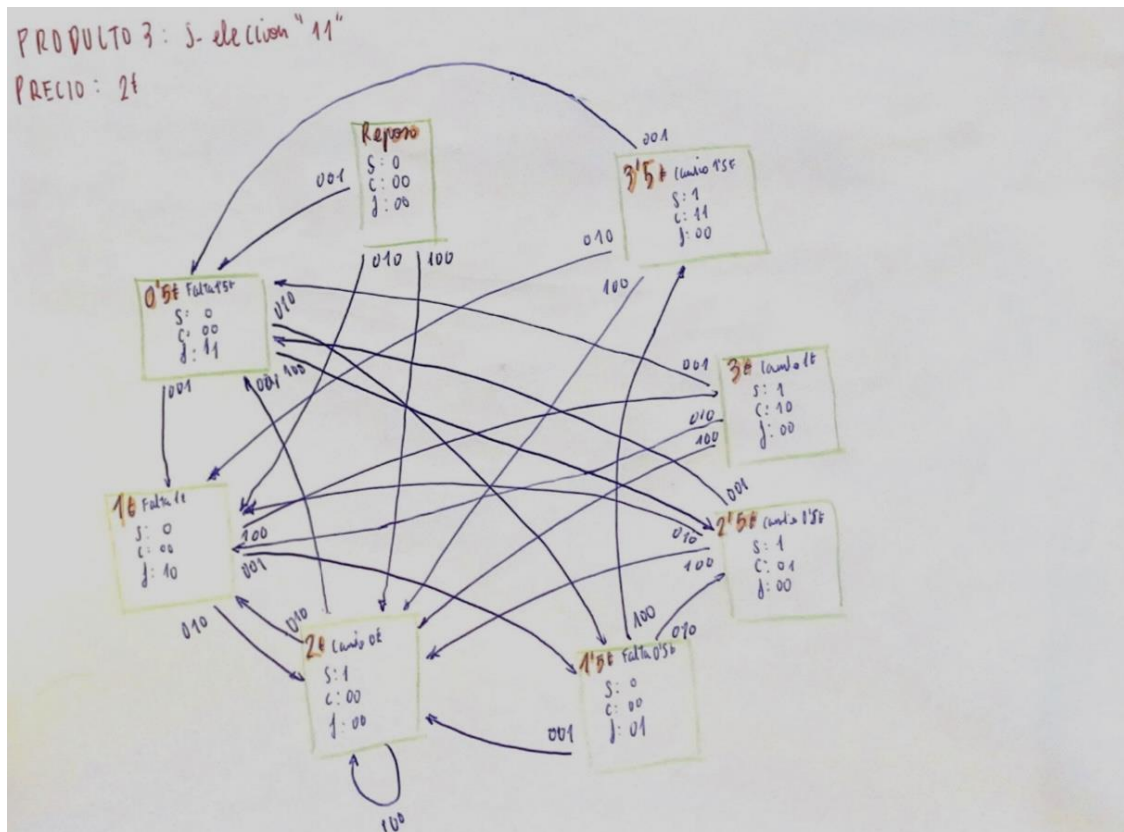 PRODUCTO 3: S-elección "11"
PRECIO: 2€
001
Reposo
S: 0
C: 00
f: 00
001
010
100
3'5€ Cambio 1'5€
S: 1
C: 11
f: 00
010
100
0'5€ Falta 1'5€
S: 0
C: 00
f: 11
010
100
001
001
3€ Cambio 1€
S: 1
C: 10
f: 00
001
010
100
1€ Falta 1€
S: 0
C: 00
f: 10
100
001
010
2'5€ Cambio 0'5€
S: 1
C: 01
f: 00
001
010
100
2€ Cambio 0€
S: 1
C: 00
f: 00
010
100
1'5€ Falta 0'5€
S: 0
C: 00
f: 01
100
010
001